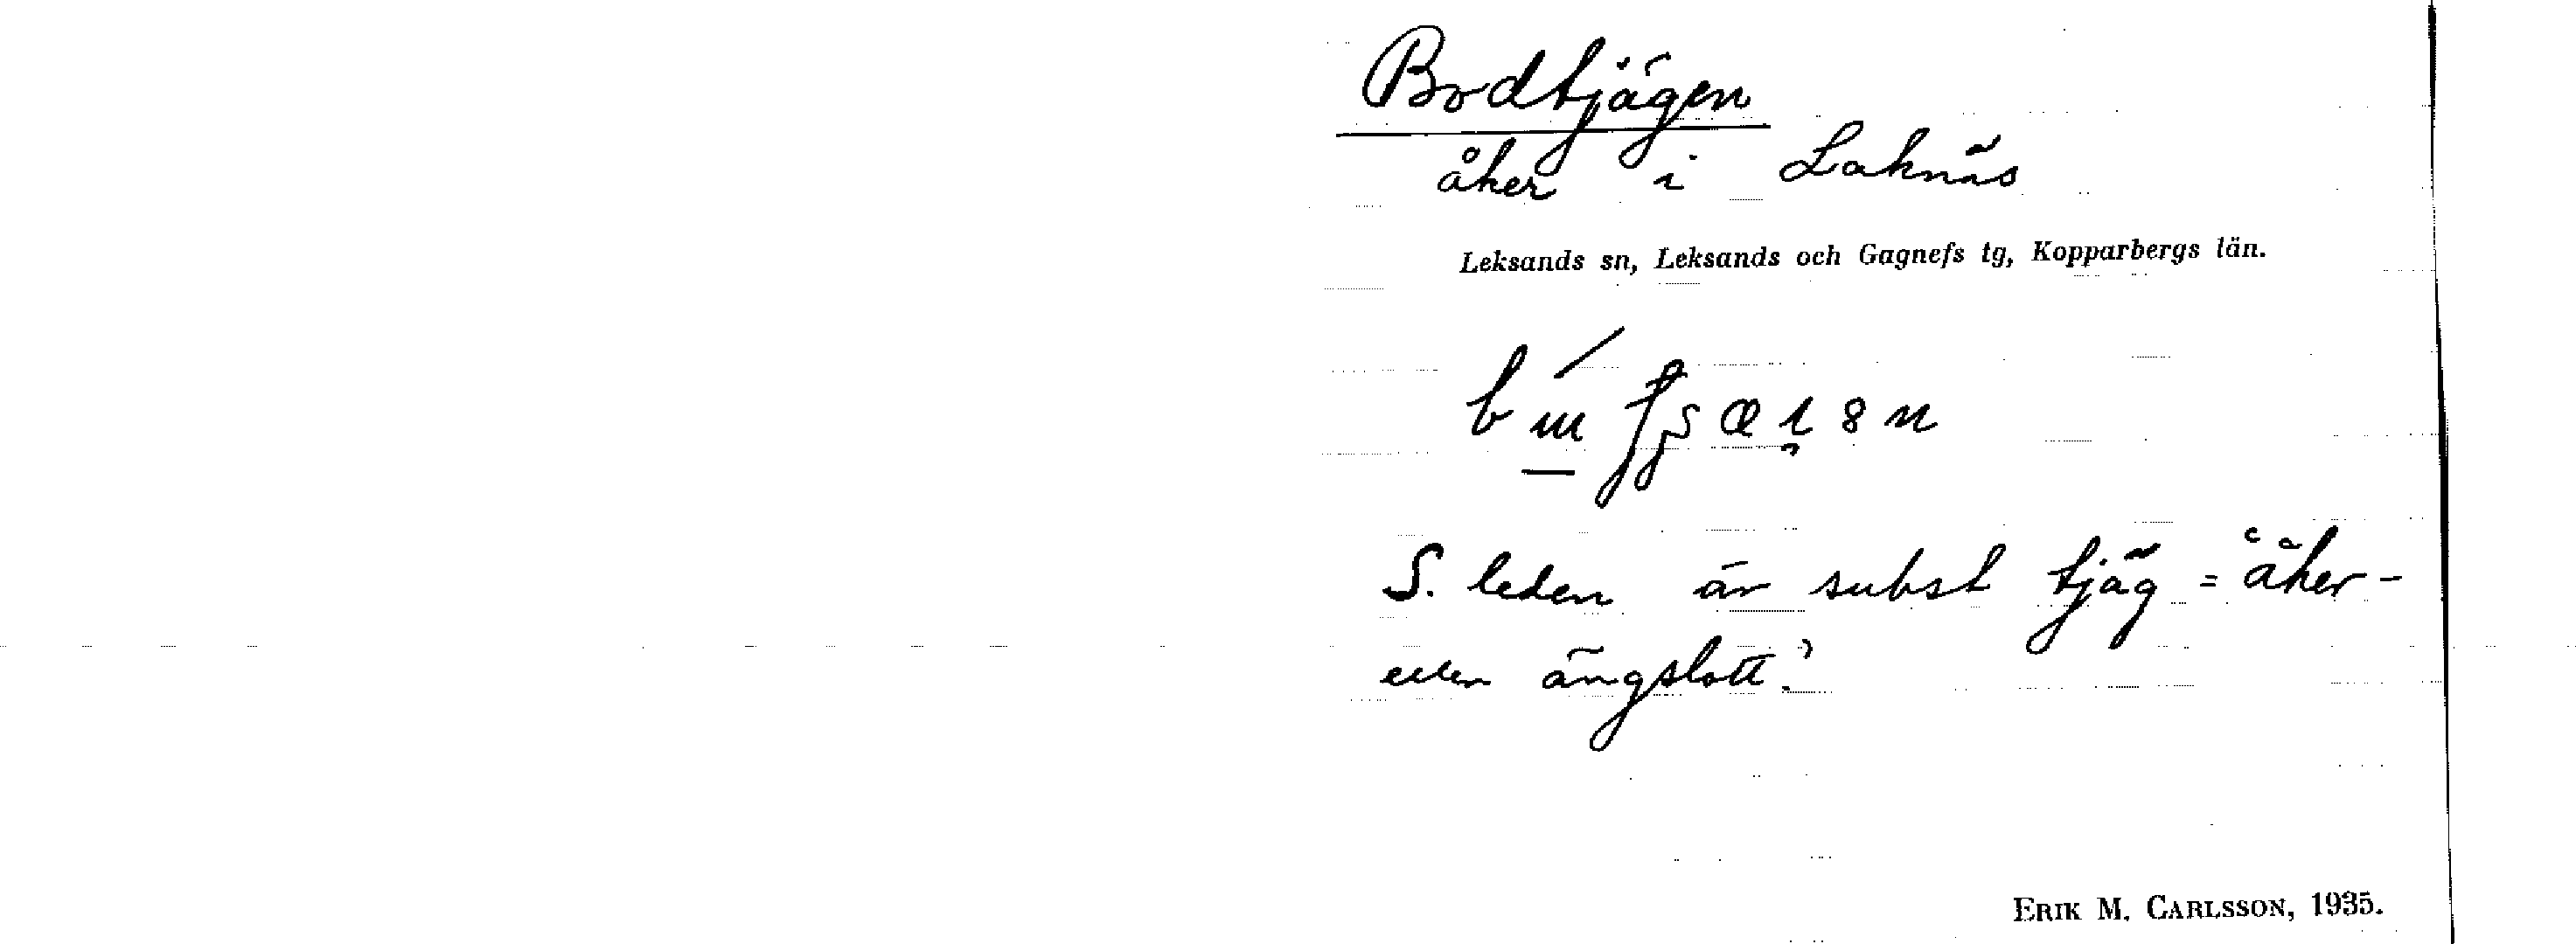 Bodtjägen
åker i Laknäs
Leksands sn, Leksands och Gagnefs tg, Kopparbergs län.
S. leden är subst tjäg = åker-
eller ängslott?
ERIK M. CARLSSON, 1935.